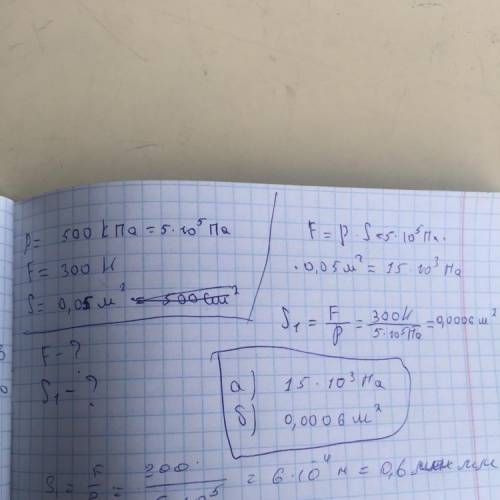 p = 500 кПа = 5·10⁵ Па
F = 300 Н
S = 0,05 м² = 500 см²
F - ?
S₁ - ?
F = p · S = 5·10⁵ Па·
· 0,05 м² = 15·10³ Па
S₁ = F/p = 300Н/5·10⁵Па = 0,0006 м²
а) 15·10³ Па
б) 0,0006 м²
= 6·10⁻⁴ м = 0,6